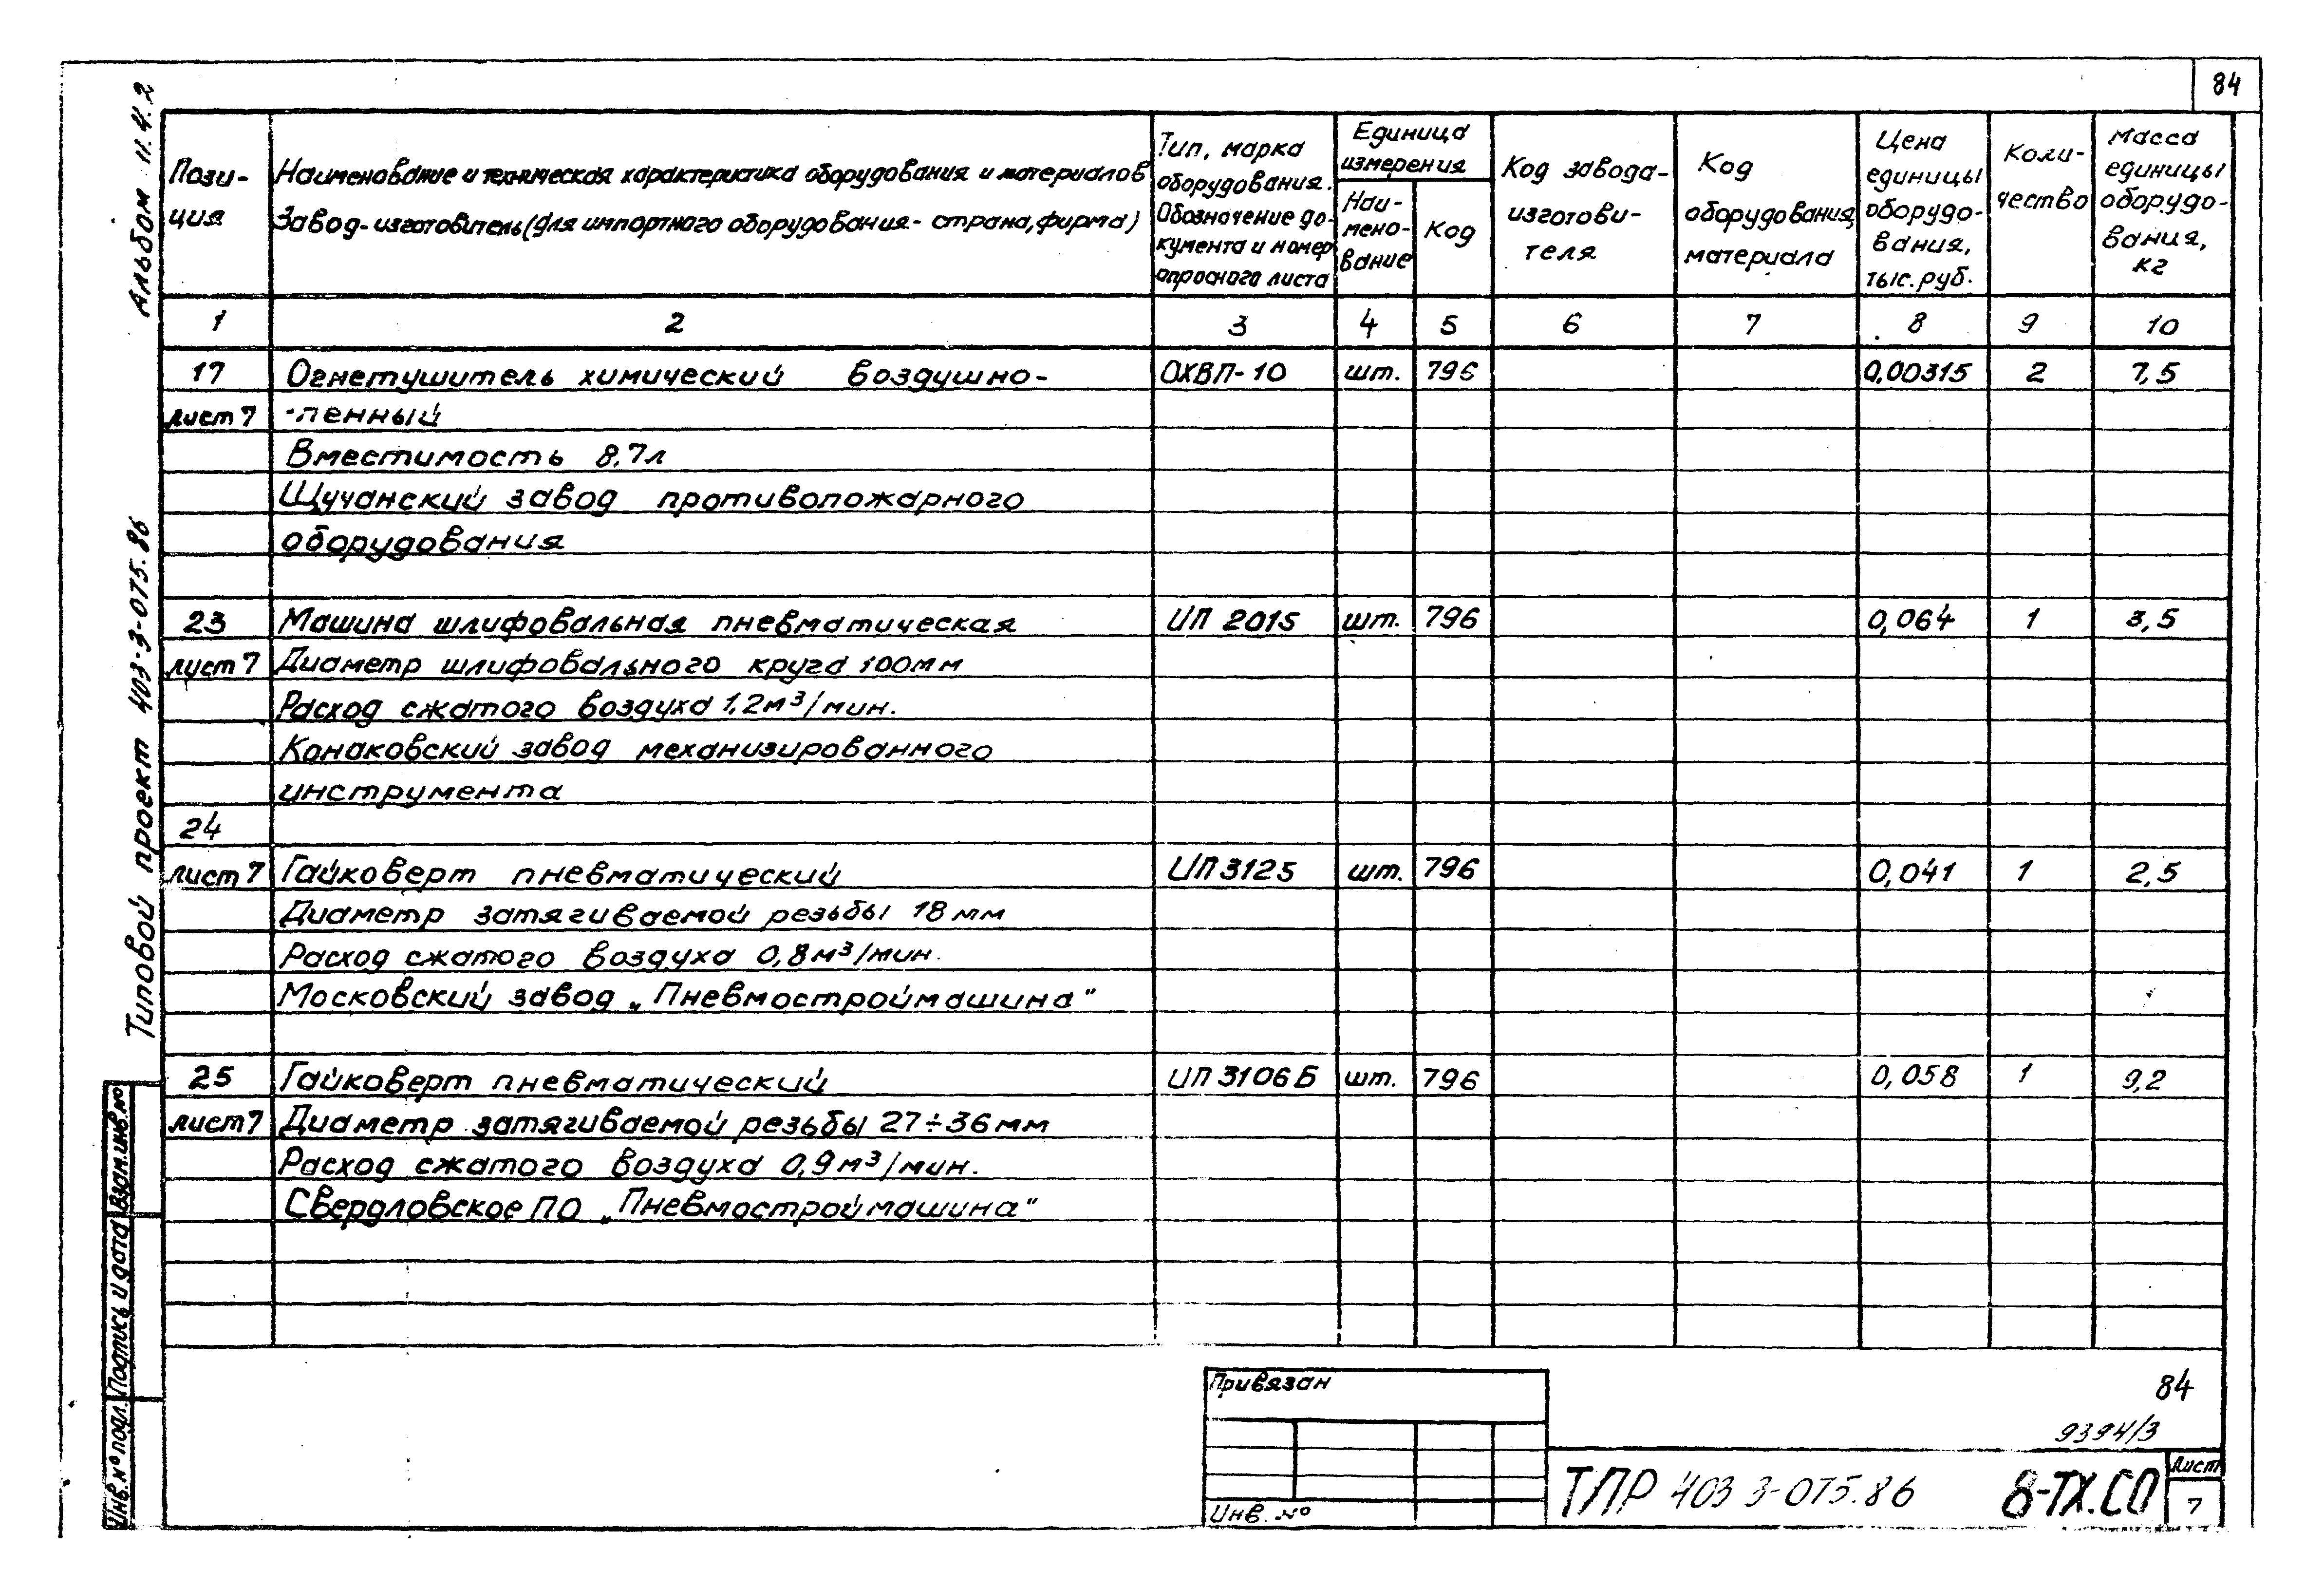 84
Альбом 11.4.2
Типовой проект 403-3-075.86
Пози-
ция
Наименование и техническая характеристика оборудования и материалов
Завод-изготовитель (для импортного оборудования - страна, фирма)
Тип, марка
оборудования.
Обозначение до-
кумента и номер
опросного листа
Единица
измерения
Наи-
мено-
вание
Код
Код завода-
изготови-
теля
Код
оборудования,
материала
Цена
единицы
оборудо-
вания,
тыс. руб.
Коли-
чество
Масса
единицы
оборудо-
вания,
кг
1 2 3 4 5 6 7 8 9 10
17 Огнетушитель химический воздушно- ОХВП-10 шт. 796 0,00315 2 7,5
лист 7 -пенный
Вместимость 8,7л
Щучанский завод противопожарного
оборудования
23 Машина шлифовальная пневматическая ИП 2015 шт. 796 0,064 1 3,5
лист 7 Диаметр шлифовального круга 100мм
Расход сжатого воздуха 1,2м³/мин.
Конаковский завод механизированного
инструмента
24
лист 7 Гайковерт пневматический ИП 3125 шт. 796 0,041 1 2,5
Диаметр затягиваемой резьбы 18 мм
Расход сжатого воздуха 0,8м³/мин.
Московский завод „Пневмостроймашина"
25 Гайковерт пневматический ИП 3106Б шт. 796 0,058 1 9,2
лист 7 Диаметр затягиваемой резьбы 27÷36 мм
Расход сжатого воздуха 0,9м³/мин.
Свердловское ПО „Пневмостроймашина"
Взам.инв.№
Подпись и дата
Инв.№ подл.
Привязан
Инв. №
84
9394/3
ТПР 403 3-075.86 8-ТХ.СО
Лист
7